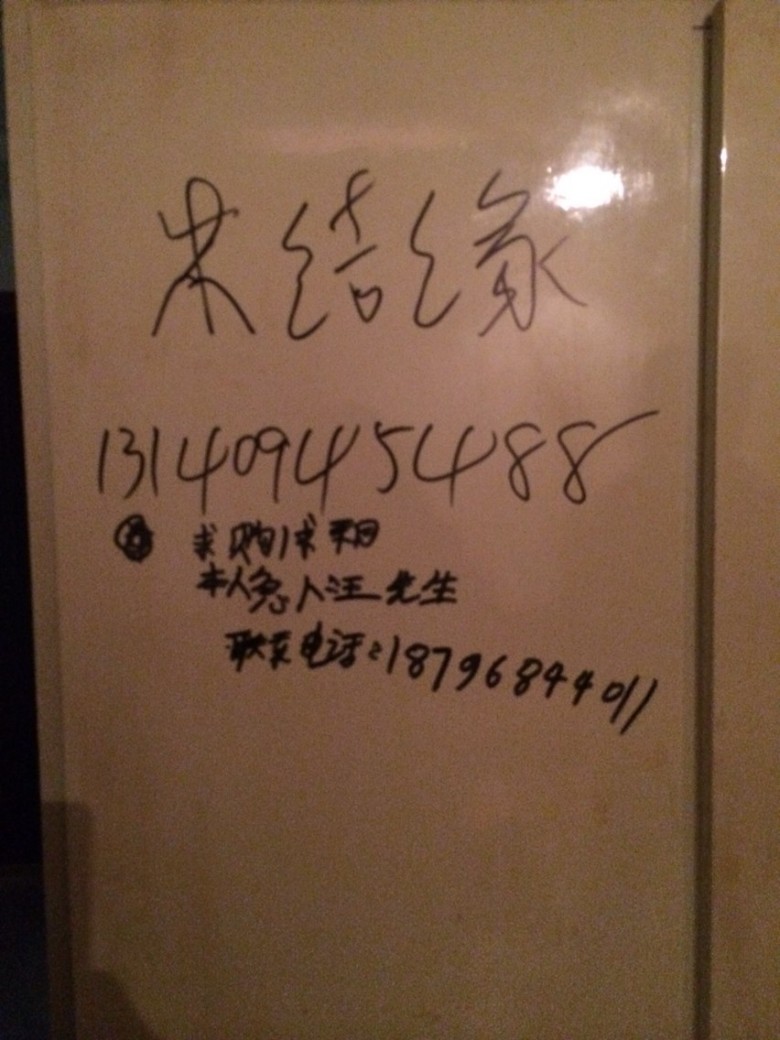 未结缘
13140945488
求购求租
本人急人汪先生
联系电话:18796844011